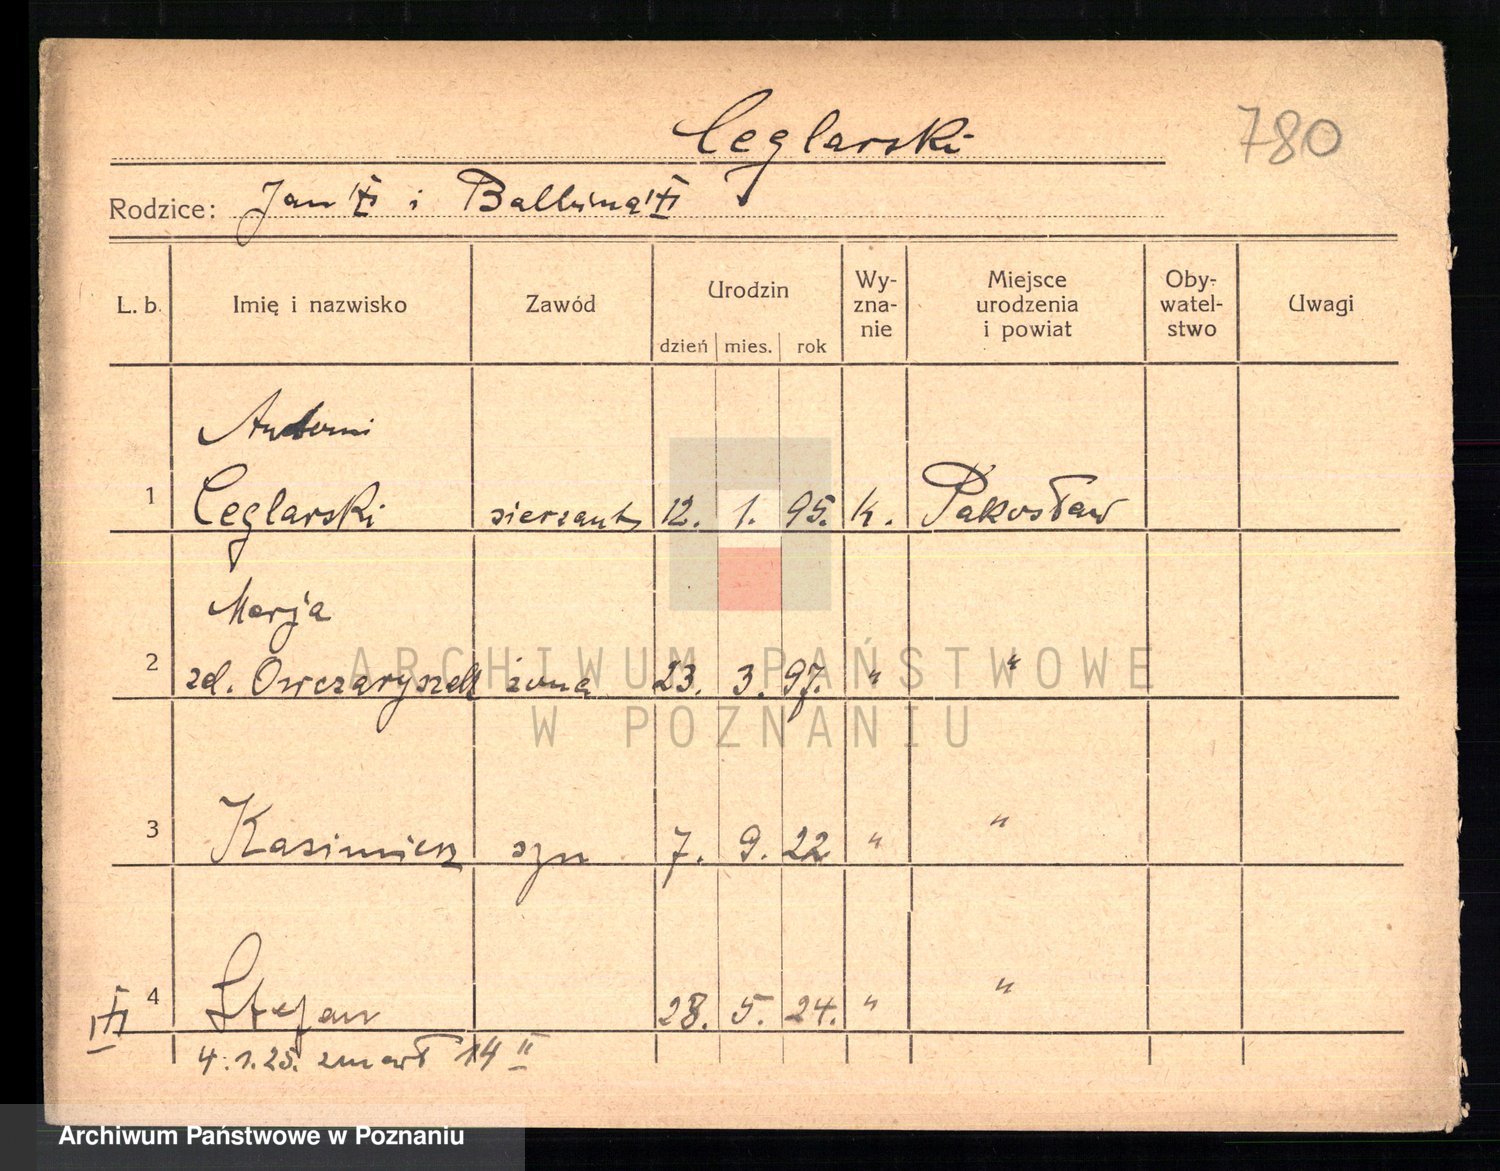 Ceglarski
780
Rodzice: Jan i Balbina
L. b. Imię i nazwisko Zawód Urodzin Wy-zna-nie Miejsce urodzenia i powiat Oby-watel-stwo Uwagi
dzień mies. rok
Antoni
1 Ceglarski sierżant 12. 1. 95. k. Pakosław
Marja
2 zd. Owczaryszek żona 23. 3. 97. " "
3 Kasimierz syn 7. 9. 22 " "
4 Stefan 28. 5. 24. " "
4.1.25. zmarł 14 II
ARCHIWUM PAŃSTWOWE
W POZNANIU
Archiwum Państwowe w Poznaniu